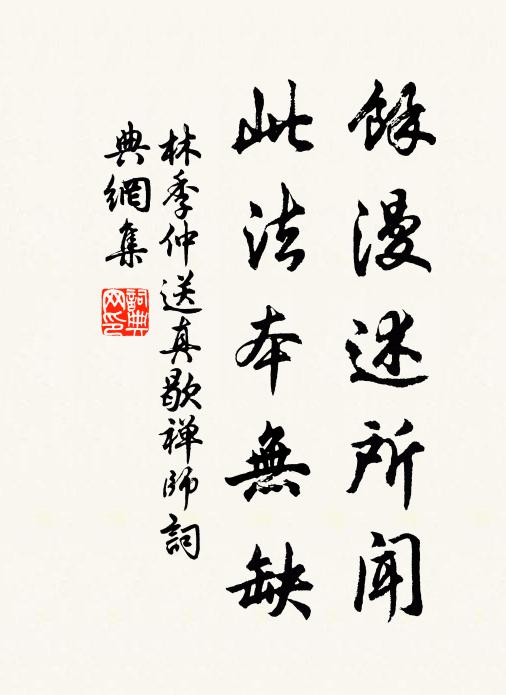 餘漫述所聞
此法本無缺
林季仲送真歇禅師詞
典網集
詞典網印